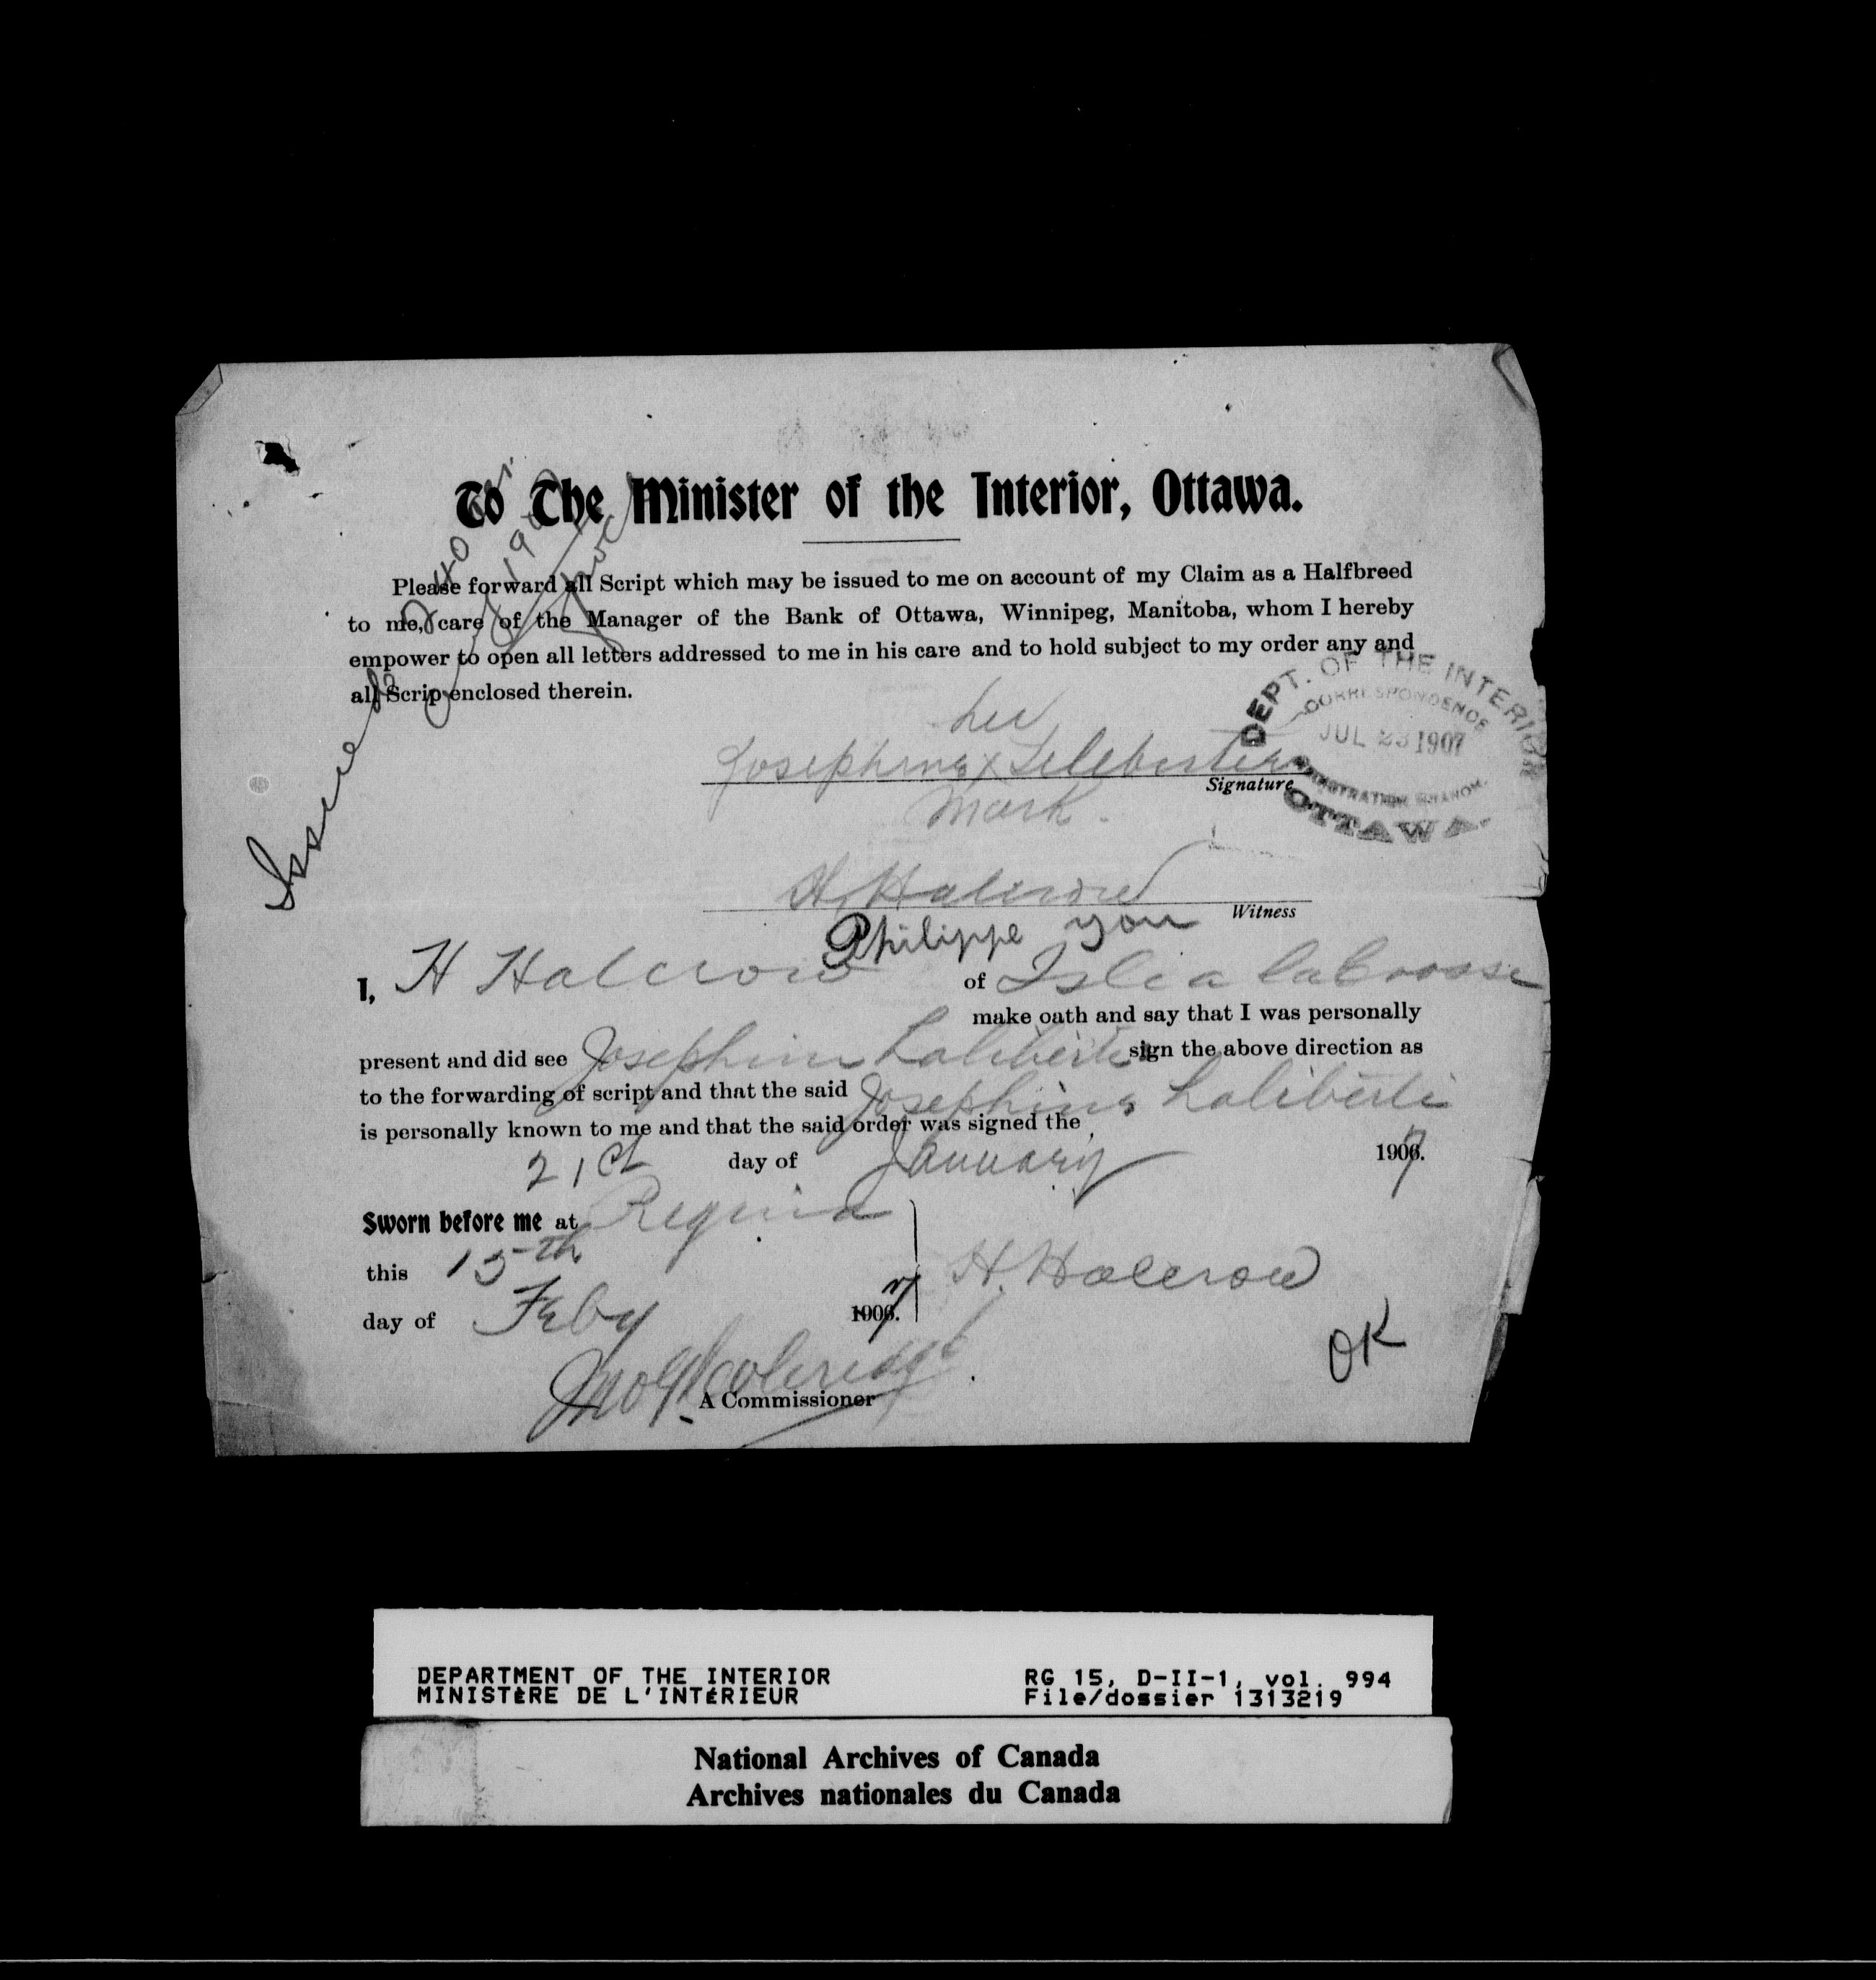 To The Minister of the Interior, Ottawa.
Please forward all Script which may be issued to me on account of my Claim as a Halfbreed
to me, care of the Manager of the Bank of Ottawa, Winnipeg, Manitoba, whom I hereby
empower to open all letters addressed to me in his care and to hold subject to my order any and
all Scrip enclosed therein.
Issued
DEPT. OF THE INTERIOR
CORRESPONDENCE
JUL 23 1907
REGISTRATION BRANCH
OTTAWA
her
Josephine x
Signature
Mark.
H. Halcrow
Witness
Philippe you
I, H Halcrow of Isle a la Crosse
make oath and say that I was personally
present and did see Josephine Laliberte sign the above direction as
to the forwarding of script and that the said Josephine Laliberte
is personally known to me and that the said order was signed the
21st day of January 1907.
Sworn before me at Regina
this 15th
day of Feby 1907.
H. Halcrow
OK
A Commissioner
DEPARTMENT OF THE INTERIOR
MINISTÈRE DE L'INTÉRIEUR
RG 15, D-II-1, vol. 994
File/dossier 1313219
National Archives of Canada
Archives nationales du Canada